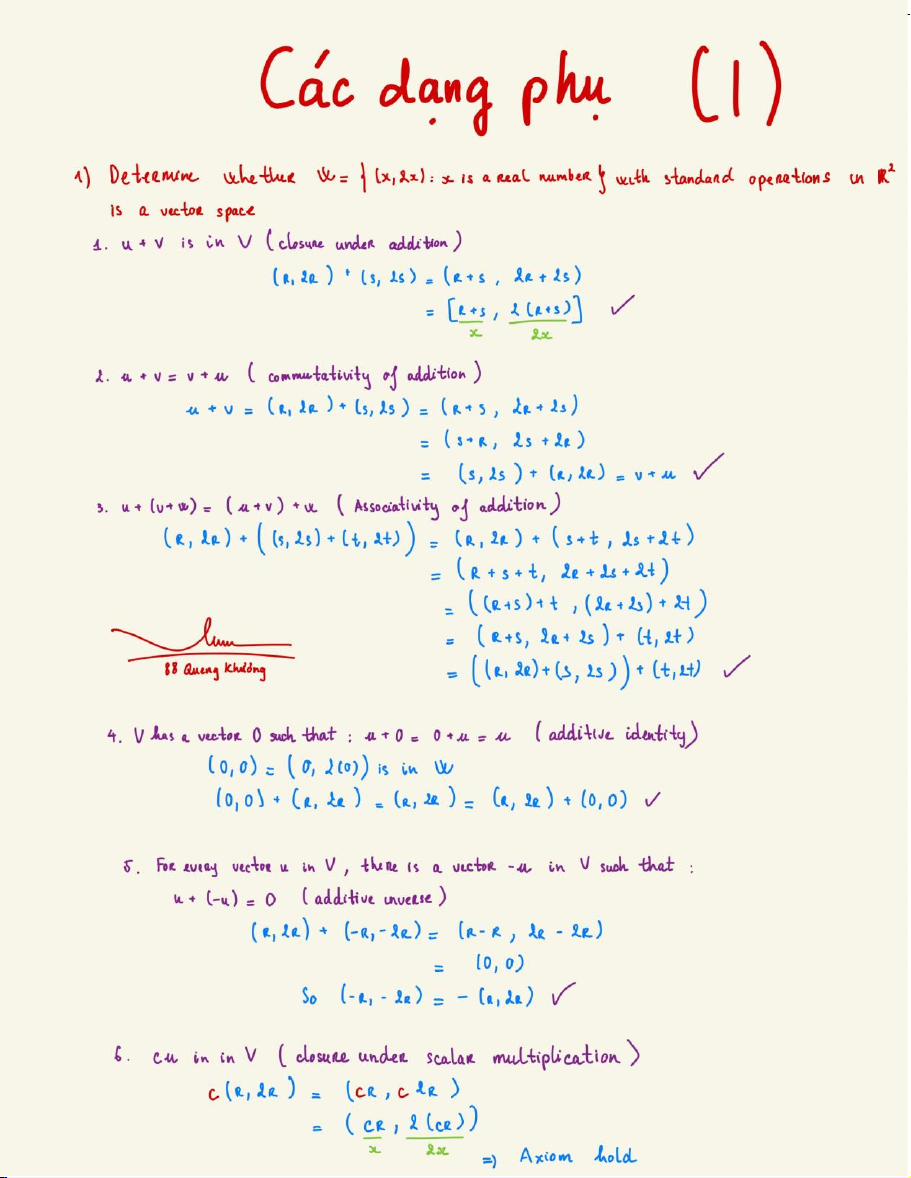 Các dạng phụ (1)
1) Determine whether W = { (x, 2x) : x is a real number } with standard operations in R²
is a vector space
1. u + v is in V (closure under addition)
(R, 2R) + (s, 2s) = (R+s, 2R + 2s)
= [R+s, 2(R+s)] ✓
x 2x
2. u + v = v + u ( commutativity of addition)
u + v = (R, 2R) + (s, 2s) = (R+s, 2R + 2s)
= (s+R, 2s + 2R)
= (s, 2s) + (R, 2R) = v + u ✓
3. u + (v+w) = (u+v) + w ( Associativity of addition)
(R, 2R) + ((s, 2s) + (t, 2t)) = (R, 2R) + (s+t, 2s+2t)
= (R+s+t, 2R+2s+2t)
= ((R+s)+t, (2R+2s)+2t)
= (R+s, 2R+2s) + (t, 2t)
= ((R, 2R)+(s, 2s)) + (t, 2t) ✓
88 Quang Khương
4. V has a vector 0 such that : u + 0 = 0 + u = u (additive identity)
(0,0) = (0, 2(0)) is in W
(0,0) + (R, 2R) = (R, 2R) = (R, 2R) + (0,0) ✓
5. For every vector u in V, there is a vector -u in V such that :
u + (-u) = 0 (additive inverse)
(R, 2R) + (-R, -2R) = (R-R, 2R - 2R)
= (0,0)
So (-R, -2R) = - (R, 2R) ✓
6. cu in in V (closure under scalar multiplication)
c(R, 2R) = (cR, c2R)
= (cR, 2(cR))
x 2x
=) Axiom hold